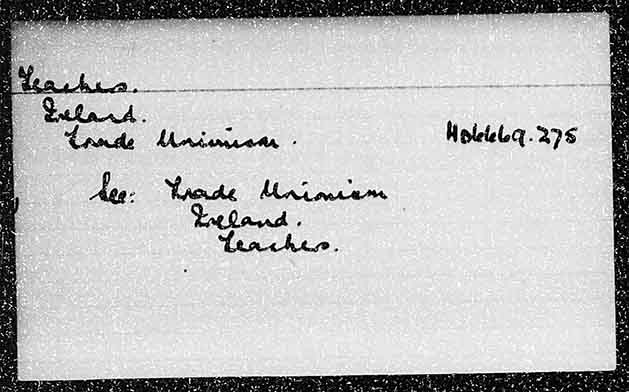 Teachers.
Ireland.
Trade Unionism. HD6669.275
See: Trade Unionism
Ireland.
Teachers.